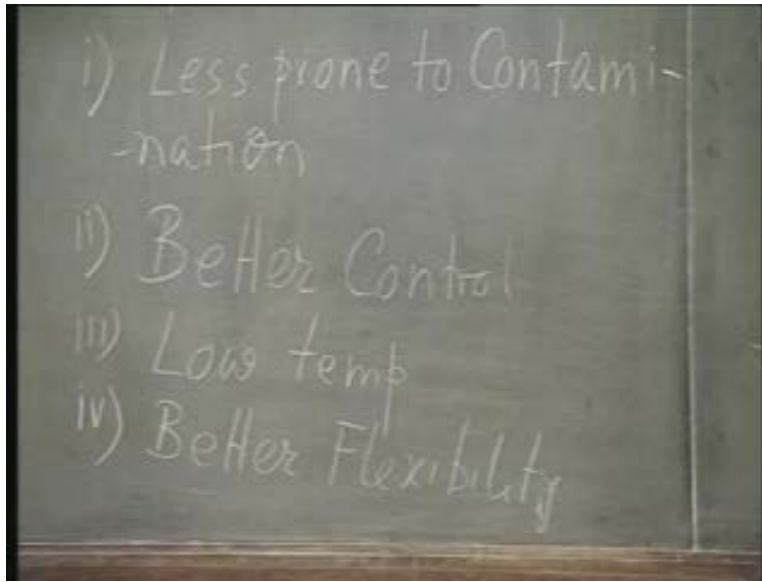 i) Less prone to Contami-
-nation
ii) Better Control
iii) Low temp
iv) Better Flexibility